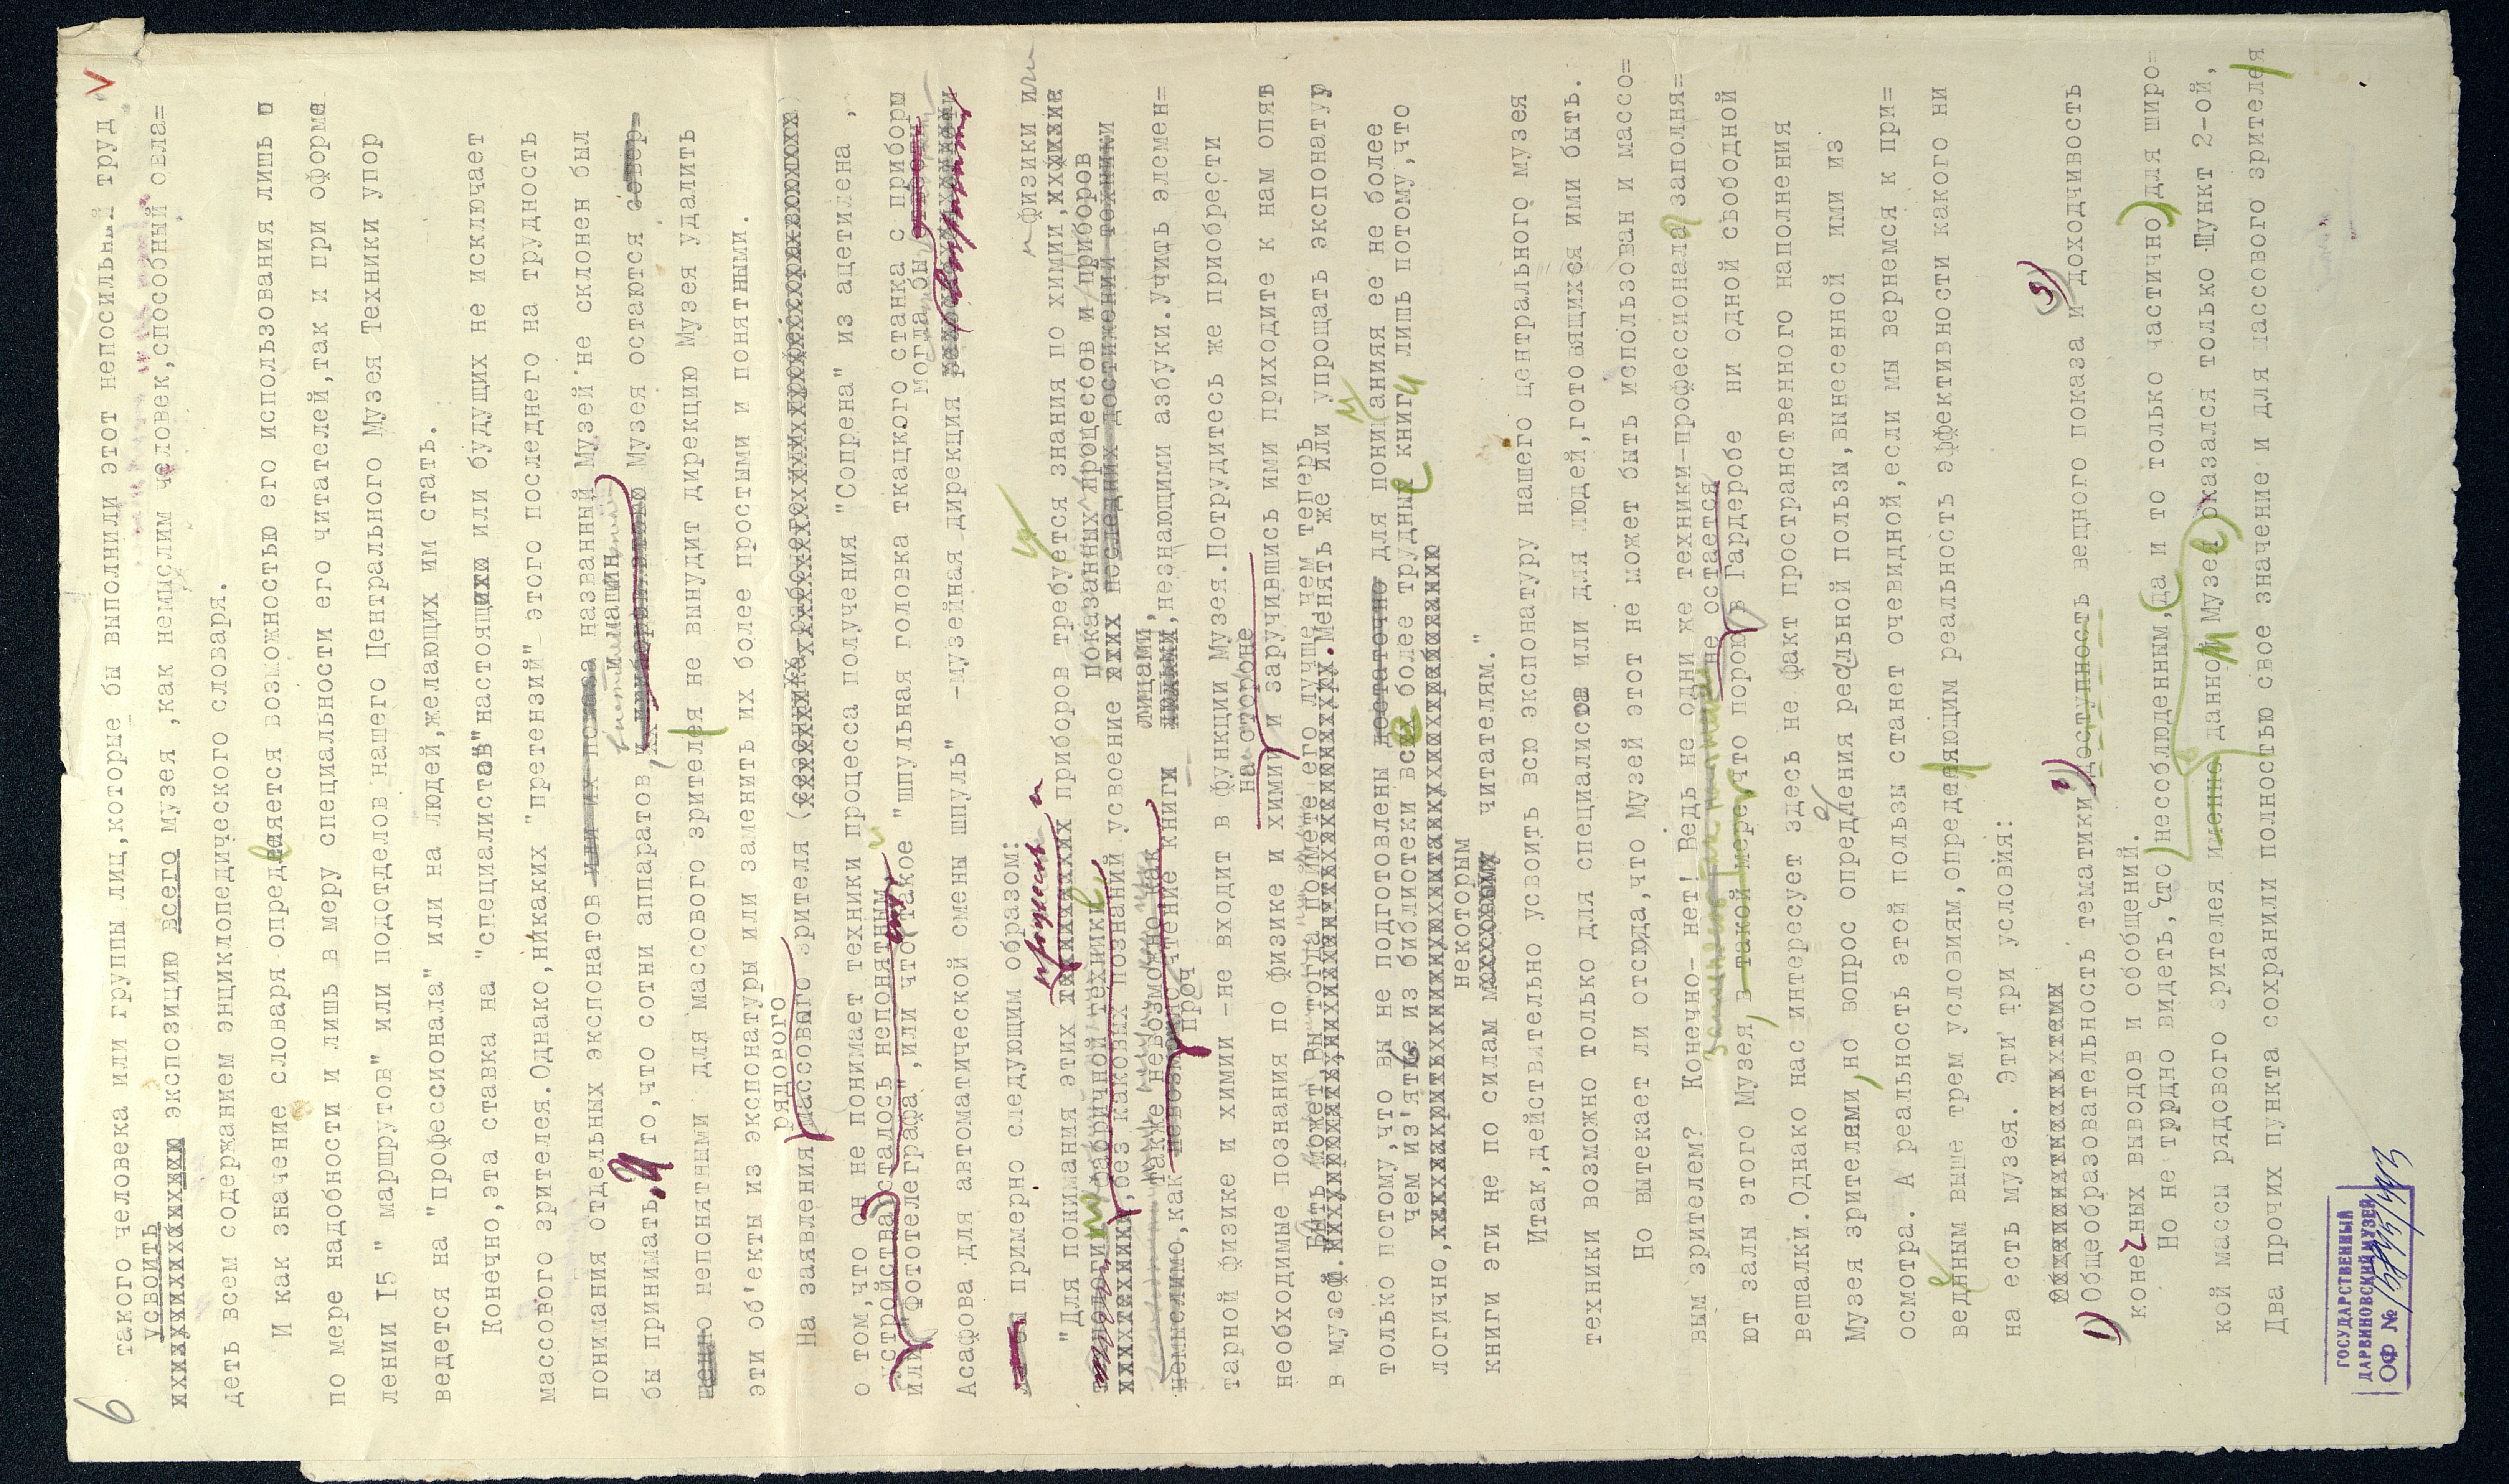 6
такого человека или группы лиц,которые бы выполнили этот непосильный труд
усвоить
экспозицию всего музея ,как немыслим человек,способный овла=
деть всем содержанием энциклопедического словаря.
И как значение словаря определяется возможностью его использования лишь
по мере надобности и лишь в меру специальности его читателей,так и при оформ
лении I5 " маршрутов" или подотделов нашего Центрального Музея Техники упор
ведется на "профессионала" или на людей,желающих им стать.
Конечно,эта ставка на "специалистов" настоящих или будущих не исключает
массового зрителя.Однако,никаких "претензий" этого последнего на трудность
понимания отдельных экспонатов или их показа названный Музей не склонен был
бы принимать, и то,что сотни аппаратов, и машин Музея остаются совер=
шенно непонятными для массового зрителя не вынудит дирекцию Музея удалить
эти об'екты из экспонатуры или заменить их более простыми и понятными.
рядового
На заявления массового зрителя
о том,что он не понимает техники процесса получения "Сопрена" из ацетилена ,
устройства осталось непонятным,
или "фототелеграфа",или что такое "шпульная головка ткацкого станка с прибором
могла бы ответить
Асафова для автоматической смены шпуль" -музейная дирекция
примерно следующим образом:
"Для понимания этих приборов требуется знания по химии, и физики
показанных процессов и приборов
фабричной техники
,без каковых познаний усвоение последних достижений техники
также невозможно как лицами,
немыслимо,как невозможно чтение книги ,незнающими азбуки.Учить элемен=
тарной физике и химии -не входит в функции Музея.Потрудитесь же приобрести
на стороне
необходимые познания по физике и химии и заручившись ими приходите к нам опять
Быть может Вы тогда поймете его лучше чем теперь
в музей. Менять же или упрощать экспонатуру
только потому,что вы не подготовлены достаточно для понимания ее не более
чем из'ятие из библиотеки всех более трудных книг лишь потому,что
логично,
некоторым
книги эти не по силам массовому читателям."
Итак,действительно усвоить всю экспонатуру нашего центрального музея
техники возможно только для специалистов или для людей,готовящихся ими быть.
Но вытекает ли отсюда,что Музей этот не может быть использован и массо=
вым зрителем? Конечно- нет! Ведь не одни же техники-профессионала заполня=
не остается
ют залы этого Музея, в такой мере что порою в Гардеробе ни одной свободной
вешалки.Однако нас интересует здесь не факт пространственного наполнения
Музея зрителями,но вопрос определения реальной пользы,вынесенной ими из
осмотра. А реальность этой пользы станет очевидной,если мы вернемся к при=
веденным выше трем условиям,определяющим реальность эффективности какого ни
на есть музея. Эти три условия:
1) Общеобразовательность тематики 2) доступность вещного показа и 3) доходчивость
конечных выводов и обобщений.
Но не трудно видеть, что несоблюденным,да и то только частично для широ=
кой массы рядового зрителя именно данной Музея оказался только Пункт 2-ой,
Два прочих пункта сохранили полностью свое значение и для массового зрителя
ГОСУДАРСТВЕННЫЙ
ДАРВИНОВСКИЙ МУЗЕЙ
ОФ №